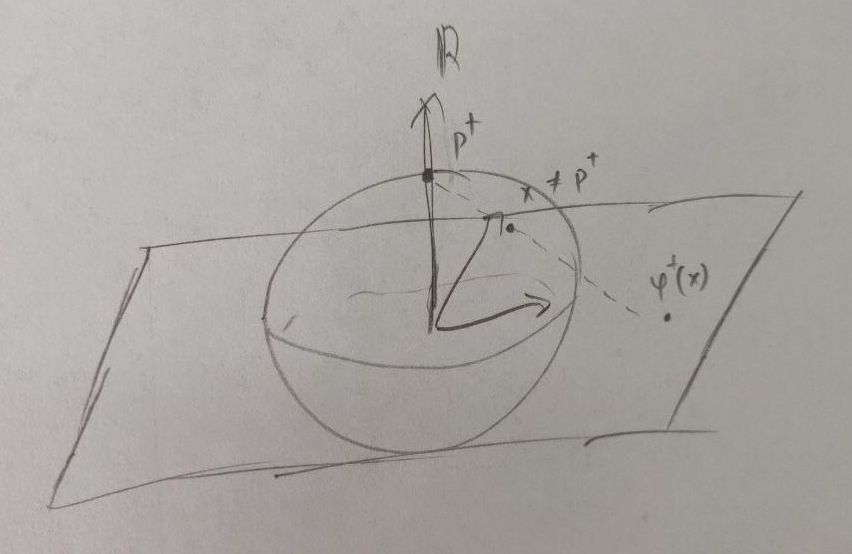 ℝ
p⁺
x ≠ p⁺
φ⁺(x)